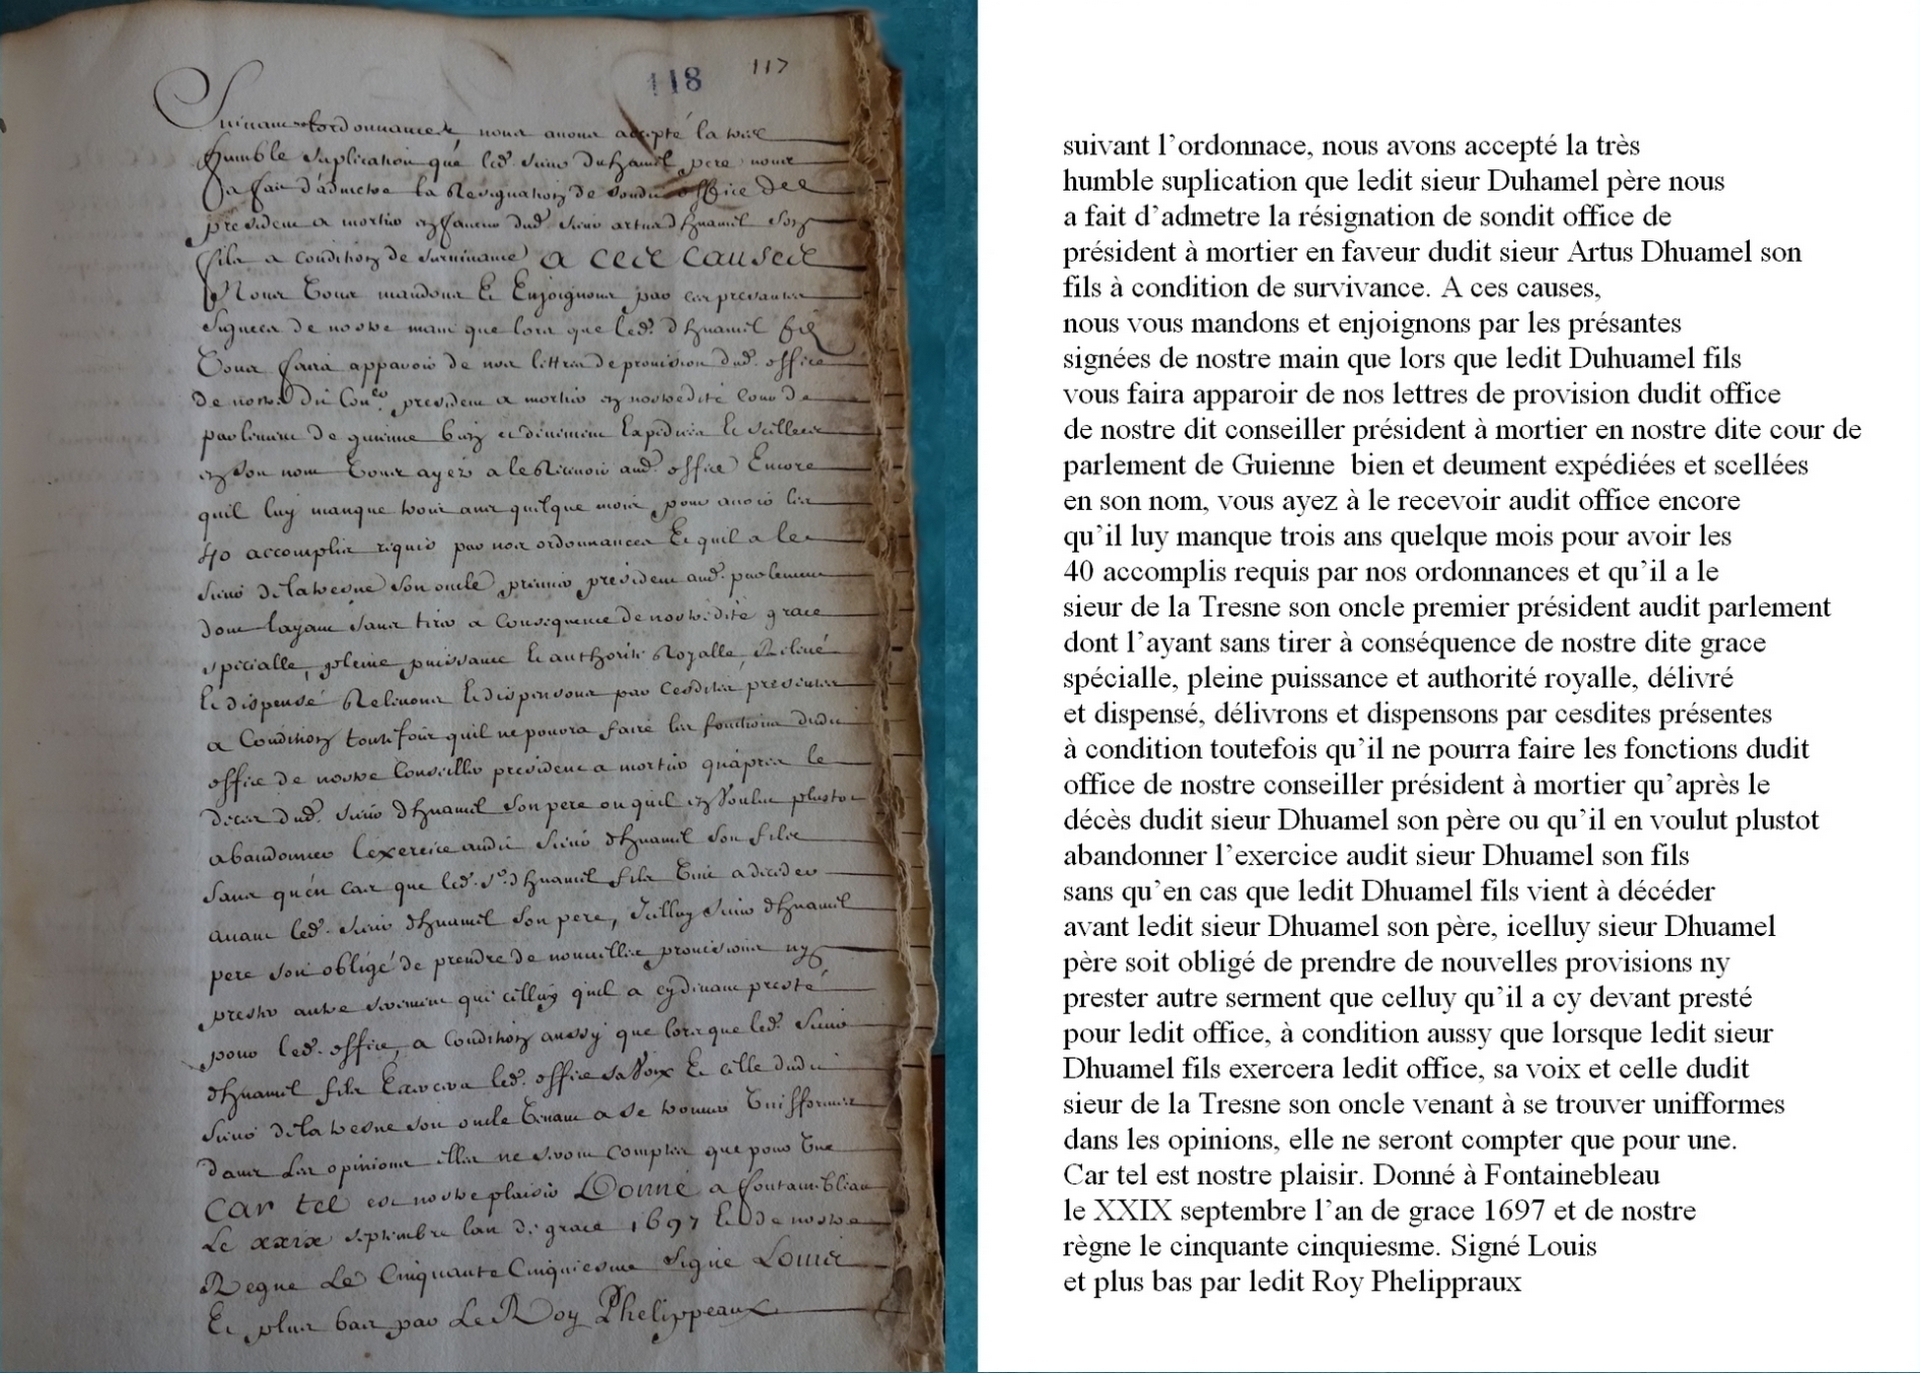 118 117
Suivant lordonnance nous avons accepté la tres
humble suplication que led. sieur duhamel pere nous
a fait d'admetre la Resignation de sondit office de
president a mortier en faveur dud. sieur artus dhuamel son
fils a condition de survivance A CES CAUSES
Nous Vous mandons Et Enjoignons par ces presantes
signees de nostre main que lors que led. dhuamel fils
Vous faira apparoir de nos lettres de provision dud. office
de nostre dit Con.er president a mortier en nostredite Cour de
parlement de guienne bien et deument Expediées Et scellees
en son nom Vous ayez a le Recevoir aud. office Encore
quil luy manque trois ans quelque mois pour avoir les
40 accomplis requis par nos ordonnances Et quil a le
sieur de la tresne son oncle premier president aud. parlement
dont layant sans tirer a Consequence de nostredite grace
specialle, pleine puissance Et authorité Royalle, Relevé
Et dispensé Relevons Et dispensons par Cesdites presentes
a Condition toutesfois quil ne pourra faire les fonctions dudit
office de nostre Conseiller president a mortier qu'apres le
deces dud. sieur dhuamel son pere ou quil en Voulut plustot
abandonner l'exercice audit sieur dhuamel son fils
sans qu'en cas que led. sr. dhuamel fils Vint a deceder
avant led. sieur dhuamel son pere, Icelluy sieur dhuamel
pere soit obligé de prendre de nouvelles provisions ny
prester autre serment que celluy quil a cy devant presté
pour led. office, a Condition aussy que lorsque led. sieur
dhuamel fils Exercera led. office sa Voix Et celle dudit
sieur de la tresne son oncle Venant a se trouver Unifformes
dans Les opinions elles ne seront Comptées que pour Une
CAR TEL est nostre plaisir Donné a fontainebleau
Le xxix septembre lan de grace 1697 Et de nostre
Regne Le Cinquante Cinquiesme Signé Louis
Et plus bas par Le Roy Phelippeaux
suivant l’ordonnace, nous avons accepté la très
humble suplication que ledit sieur Duhamel père nous
a fait d’admetre la résignation de sondit office de
président à mortier en faveur dudit sieur Artus Dhuamel son
fils à condition de survivance. A ces causes,
nous vous mandons et enjoignons par les présantes
signées de nostre main que lors que ledit Duhuamel fils
vous faira apparoir de nos lettres de provision dudit office
de nostre dit conseiller président à mortier en nostre dite cour de
parlement de Guienne bien et deument expédiées et scellées
en son nom, vous ayez à le recevoir audit office encore
qu’il luy manque trois ans quelque mois pour avoir les
40 accomplis requis par nos ordonnances et qu’il a le
sieur de la Tresne son oncle premier président audit parlement
dont l’ayant sans tirer à conséquence de nostre dite grace
spécialle, pleine puissance et authorité royalle, délivré
et dispensé, délivrons et dispensons par cesdites présentes
à condition toutefois qu’il ne pourra faire les fonctions dudit
office de nostre conseiller président à mortier qu’après le
décès dudit sieur Dhuamel son père ou qu’il en voulut plustot
abandonner l’exercice audit sieur Dhuamel son fils
sans qu’en cas que ledit Dhuamel fils vient à décéder
avant ledit sieur Dhuamel son père, icelluy sieur Dhuamel
père soit obligé de prendre de nouvelles provisions ny
prester autre serment que celluy qu’il a cy devant presté
pour ledit office, à condition aussy que lorsque ledit sieur
Dhuamel fils exercera ledit office, sa voix et celle dudit
sieur de la Tresne son oncle venant à se trouver unifformes
dans les opinions, elle ne seront compter que pour une.
Car tel est nostre plaisir. Donné à Fontainebleau
le XXIX septembre l’an de grace 1697 et de nostre
règne le cinquante cinquiesme. Signé Louis
et plus bas par ledit Roy Phelippraux